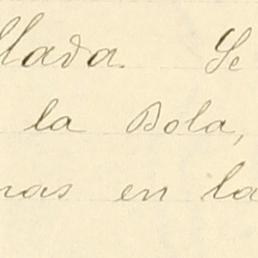 llada. Se
la Bola,
nas en la